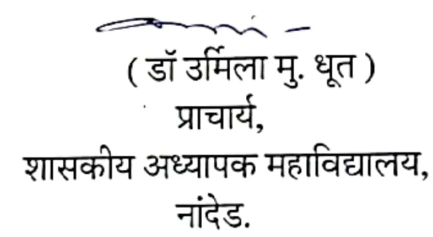 ( डॉ उर्मिला मु. धूत )
प्राचार्य,
शासकीय अध्यापक महाविद्यालय,
नांदेड.